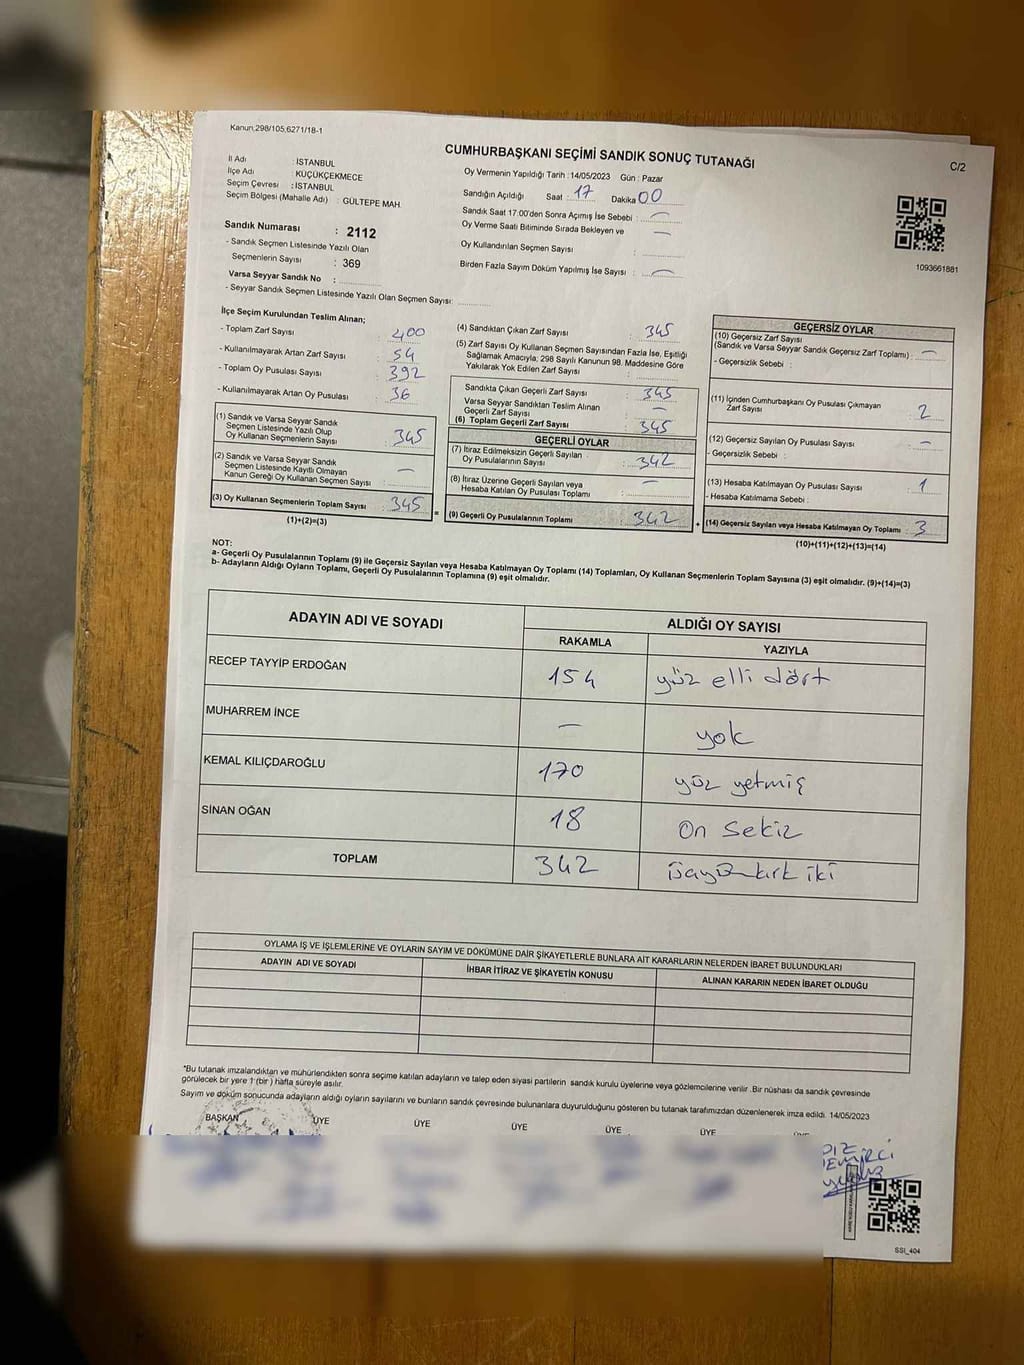 Kanun,298/105,6271/18-1
CUMHURBAŞKANI SEÇİMİ SANDIK SONUÇ TUTANAĞI
C/2
İl Adı : İSTANBUL
İlçe Adı : KÜÇÜKÇEKMECE
Seçim Çevresi : İSTANBUL
Seçim Bölgesi (Mahalle Adı) : GÜLTEPE MAH.
Sandık Numarası : 2112
- Sandık Seçmen Listesinde Yazılı Olan
Seçmenlerin Sayısı : 369
Varsa Seyyar Sandık No :
- Seyyar Sandık Seçmen Listesinde Yazılı Olan Seçmen Sayısı:
Oy Vermenin Yapıldığı Tarih : 14/05/2023 Gün : Pazar
Sandığın Açıldığı Saat : 17 Dakika 00
Sandık Saat 17:00'den Sonra Açımış İse Sebebi : —
Oy Verme Saati Bitiminde Sırada Bekleyen ve —
Oy Kullandırılan Seçmen Sayısı :
Birden Fazla Sayım Döküm Yapılmış İse Sayısı : —
1093661881
İlçe Seçim Kurulundan Teslim Alınan;
- Toplam Zarf Sayısı : 400
- Kullanılmayarak Artan Zarf Sayısı : 54
- Toplam Oy Pusulası Sayısı : 392
- Kullanılmayarak Artan Oy Pusulası : 36
(1) Sandık ve Varsa Seyyar Sandık
Seçmen Listesinde Yazılı Olup
Oy Kullanan Seçmenlerin Sayısı : 345
(2) Sandık ve Varsa Seyyar Sandık
Seçmen Listesinde Kayıtlı Olmayan
Kanun Gereği Oy Kullanan Seçmen Sayısı : —
(3) Oy Kullanan Seçmenlerin Toplam Sayısı : 345
(1)+(2)=(3)
(4) Sandıktan Çıkan Zarf Sayısı : 345
(5) Zarf Sayısı Oy Kullanan Seçmen Sayısından Fazla İse, Eşitliği
Sağlamak Amacıyla; 298 Sayılı Kanunun 98. Maddesine Göre
Yakılarak Yok Edilen Zarf Sayısı :
Sandıkta Çıkan Geçerli Zarf Sayısı : 345
Varsa Seyyar Sandıktan Teslim Alınan
Geçerli Zarf Sayısı : —
(6) Toplam Geçerli Zarf Sayısı : 345
GEÇERLİ OYLAR
(7) İtiraz Edilmeksizin Geçerli Sayılan
Oy Pusulalarının Sayısı : 342
(8) İtiraz Üzerine Geçerli Sayılan veya
Hesaba Katılan Oy Pusulası Toplamı : —
(9) Geçerli Oy Pusulalarının Toplamı : 342
GEÇERSİZ OYLAR
(10) Geçersiz Zarf Sayısı
(Sandık ve Varsa Seyyar Sandık Geçersiz Zarf Toplamı) : —
- Geçersizlik Sebebi :
(11) İçinden Cumhurbaşkanı Oy Pusulası Çıkmayan
Zarf Sayısı : 2
(12) Geçersiz Sayılan Oy Pusulası Sayısı : —
- Geçersizlik Sebebi :
(13) Hesaba Katılmayan Oy Pusulası Sayısı : 1
- Hesaba Katılmama Sebebi :
(14) Geçersiz Sayılan veya Hesaba Katılmayan Oy Toplamı : 3
(10)+(11)+(12)+(13)=(14)
NOT:
a- Geçerli Oy Pusulalarının Toplamı (9) ile Geçersiz Sayılan veya Hesaba Katılmayan Oy Toplamı (14) Toplamları, Oy Kullanan Seçmenlerin Toplam Sayısına (3) eşit olmalıdır. (9)+(14)=(3)
b- Adayların Aldığı Oyların Toplamı, Geçerli Oy Pusulalarının Toplamına (9) eşit olmalıdır.
ADAYIN ADI VE SOYADI ALDIĞI OY SAYISI
RAKAMLA YAZIYLA
RECEP TAYYİP ERDOĞAN 154 yüz elli dört
MUHARREM İNCE — yok
KEMAL KILIÇDAROĞLU 170 yüz yetmiş
SİNAN OĞAN 18 on sekiz
TOPLAM 342 üçyüz kırk iki
OYLAMA İŞ VE İŞLEMLERİNE VE OYLARIN SAYIM VE DÖKÜMÜNE DAİR ŞİKAYETLERLE BUNLARA AİT KARARLARIN NELERDEN İBARET BULUNDUKLARI
ADAYIN ADI VE SOYADI İHBAR İTİRAZ VE ŞİKAYETİN KONUSU ALINAN KARARIN NEDEN İBARET OLDUĞU
*Bu tutanak imzalandıktan ve mühürlendikten sonra seçime katılan adayların ve talep eden siyasi partilerin sandık kurulu üyelerine veya gözlemcilerine verilir. Bir nüshası da sandık çevresinde
görülecek bir yere 1 (bir) hafta süreyle asılır.
Sayım ve döküm sonucunda adayların aldığı oyların sayılarını ve bunların sandık çevresinde bulunanlara duyurulduğunu gösteren bu tutanak tarafımızdan düzenlenerek imza edildi. 14/05/2023
BAŞKAN ÜYE ÜYE ÜYE ÜYE ÜYE
SSI_404